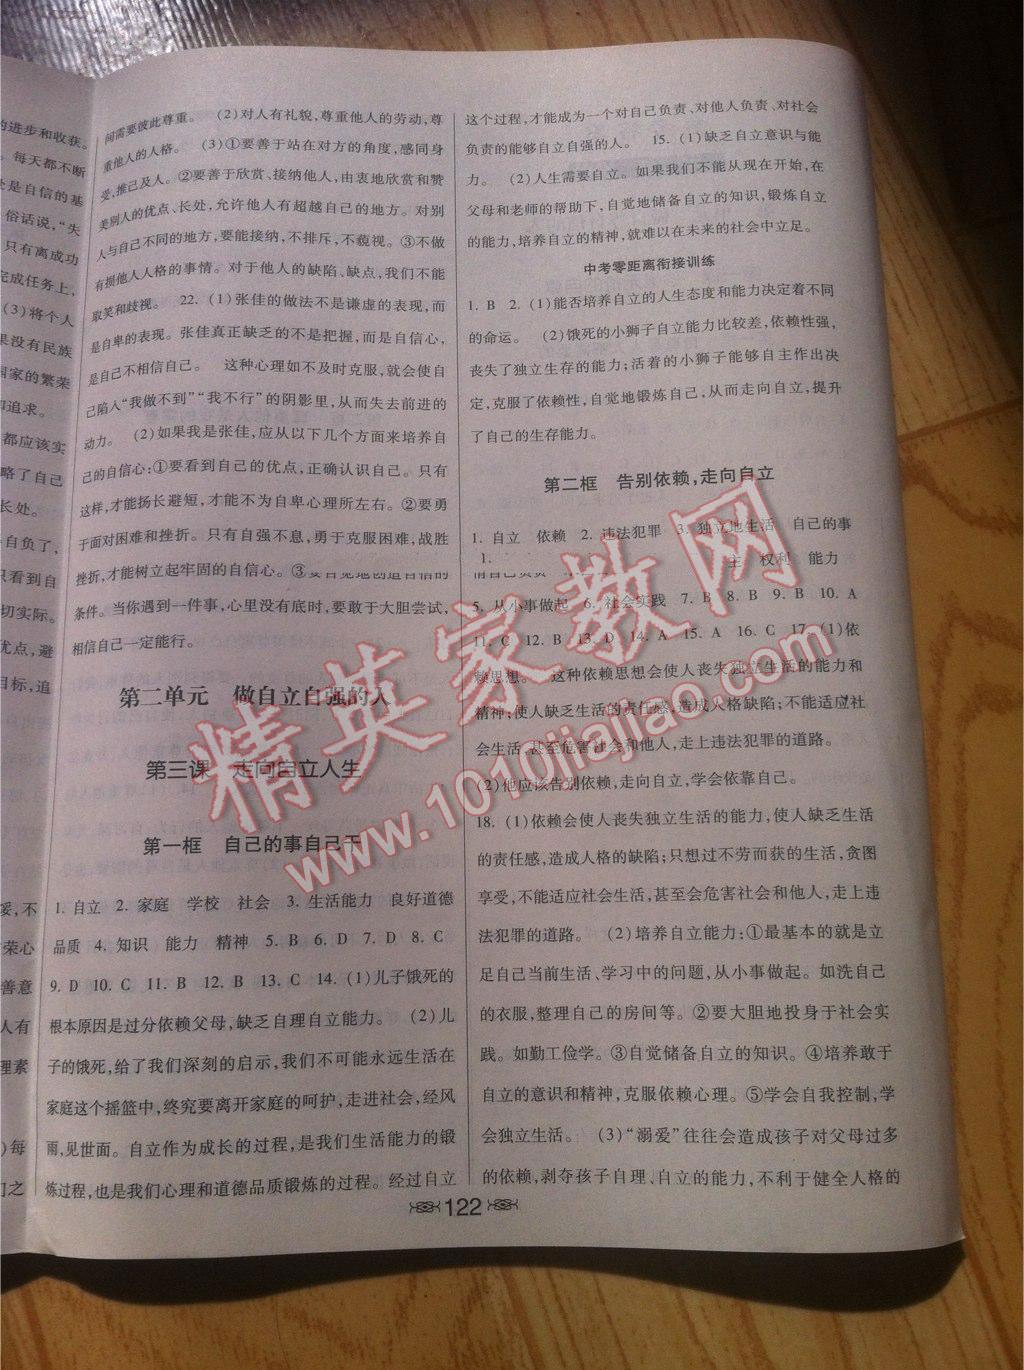 的进步和收获。
每天都不断
是自信的基
俗话说,“失
只有离成功
完成任务上,
(3)将个人
果没有民族
国家的繁荣
和追求。
都应该实
略了自己
长处。
自负了,
只看到自
切实际。
优点,避
目标,追
不
荣心
善意
人有
理素
)每
们之
间需要彼此尊重。 (2)对人有礼貌,尊重他人的劳动,尊
重他人的人格。 (3)①要善于站在对方的角度,感同身
受,推己及人。②要善于欣赏、接纳他人,由衷地欣赏和赞
美别人的优点、长处,允许他人有超越自己的地方。对别
人与自己不同的地方,要能接纳,不排斥,不藐视。③不做
有损他人人格的事情。对于他人的缺陷、缺点,我们不能
取笑和歧视。 22. (1)张佳的做法不是谦虚的表现,而
是自卑的表现。张佳真正缺乏的不是把握,而是自信心,
是自己不相信自己。 这种心理如不及时克服,就会使自
己陷入“我做不到”“我不行”的阴影里,从而失去前进的
动力。 (2)如果我是张佳,应从以下几个方面来培养自
己的自信心:①要看到自己的优点,正确认识自己。只有
这样,才能扬长避短,才能不为自卑心理所左右。②要勇
于面对困难和挫折。只有自强不息,勇于克服困难,战胜
挫折,才能树立起牢固的自信心。③要自觉地创造自信的
条件。当你遇到一件事,心里没有底时,要敢于大胆尝试,
相信自己一定能行。
第二单元 做自立自强的人
第三课 走向自立人生
第一框 自己的事自己干
1. 自立 2. 家庭 学校 社会 3. 生活能力 良好道德
品质 4. 知识 能力 精神 5. B 6. D 7. D 8. C
9. D 10. C 11. B 12. B 13. C 14. (1)儿子饿死的
根本原因是过分依赖父母,缺乏自理自立能力。 (2)儿
子的饿死,给了我们深刻的启示,我们不可能永远生活在
家庭这个摇篮中,终究要离开家庭的呵护,走进社会,经风
雨,见世面。自立作为成长的过程,是我们生活能力的锻
炼过程,也是我们心理和道德品质锻炼的过程。经过自立
这个过程,才能成为一个对自己负责、对他人负责、对社会
负责的能够自立自强的人。 15. (1)缺乏自立意识与能
力。 (2)人生需要自立。如果我们不能从现在开始,在
父母和老师的帮助下,自觉地储备自立的知识,锻炼自立
的能力,培养自立的精神,就难以在未来的社会中立足。
中考零距离衔接训练
1. B 2. (1)能否培养自立的人生态度和能力决定着不同
的命运。 (2)饿死的小狮子自立能力比较差,依赖性强,
丧失了独立生存的能力;活着的小狮子能够自主作出决
定,克服了依赖性,自觉地锻炼自己,从而走向自立,提升
了自己的生存能力。
第二框 告别依赖,走向自立
1. 自立 依赖 2. 违法犯罪 3. 独立地生活 自己的事
主 权利 能力
5. 从小事做起 6. 社会实践 7. B 8. B 9. B 10. A
11. C 12. B 13. D 14. A 15. A 16. C 17. (1)依
赖思想。 这种依赖思想会使人丧失独立生活的能力和
精神;使人缺乏生活的责任感,造成人格缺陷;不能适应社
会生活,甚至危害社会和他人,走上违法犯罪的道路。
(2)他应该告别依赖,走向自立,学会依靠自己。
18. (1)依赖会使人丧失独立生活的能力,使人缺乏生活
的责任感,造成人格的缺陷;只想过不劳而获的生活,贪图
享受,不能适应社会生活,甚至会危害社会和他人,走上违
法犯罪的道路。 (2)培养自立能力:①最基本的就是立
足自己当前生活、学习中的问题,从小事做起。如洗自己
的衣服,整理自己的房间等。②要大胆地投身于社会实
践。如勤工俭学。③自觉储备自立的知识。④培养敢于
自立的意识和精神,克服依赖心理。⑤学会自我控制,学
会独立生活。 (3)“溺爱”往往会造成孩子对父母过多
的依赖,剥夺孩子自理、自立的能力,不利于健全人格的
122
精英家教网
www.1010jiajiao.com